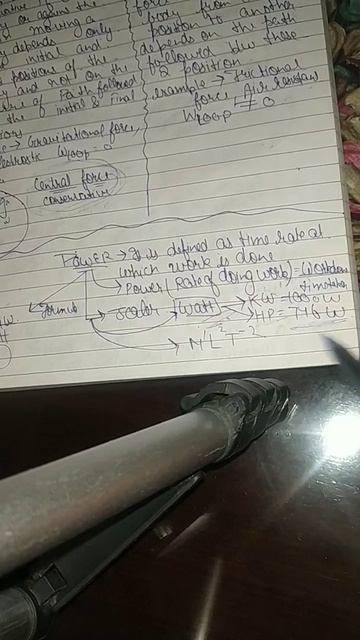 on against the
moving a
depends only
initial and
positions of the
and not on the
of Path followed
the initial & final
Gravitational force,
electrostatic Wloop = 0
Central force
conservative
force
body from a
position to another
depends on the path
followed b/w these
2 position
example → frictional
force, Air resistant
Wloop ≠ 0
POWER → It is defined as time rate at
which work is done
→ Power (Rate of doing work) = Workdone
Time taken
formula
→ scalar → Watt → KW = 1000 W
HP = 746 W
→ M¹L²T⁻³